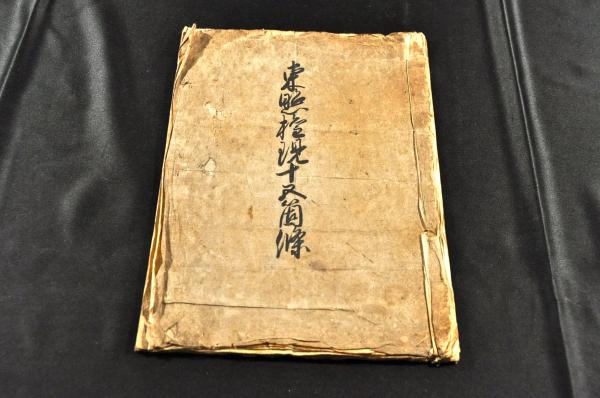 東照権現十五箇條